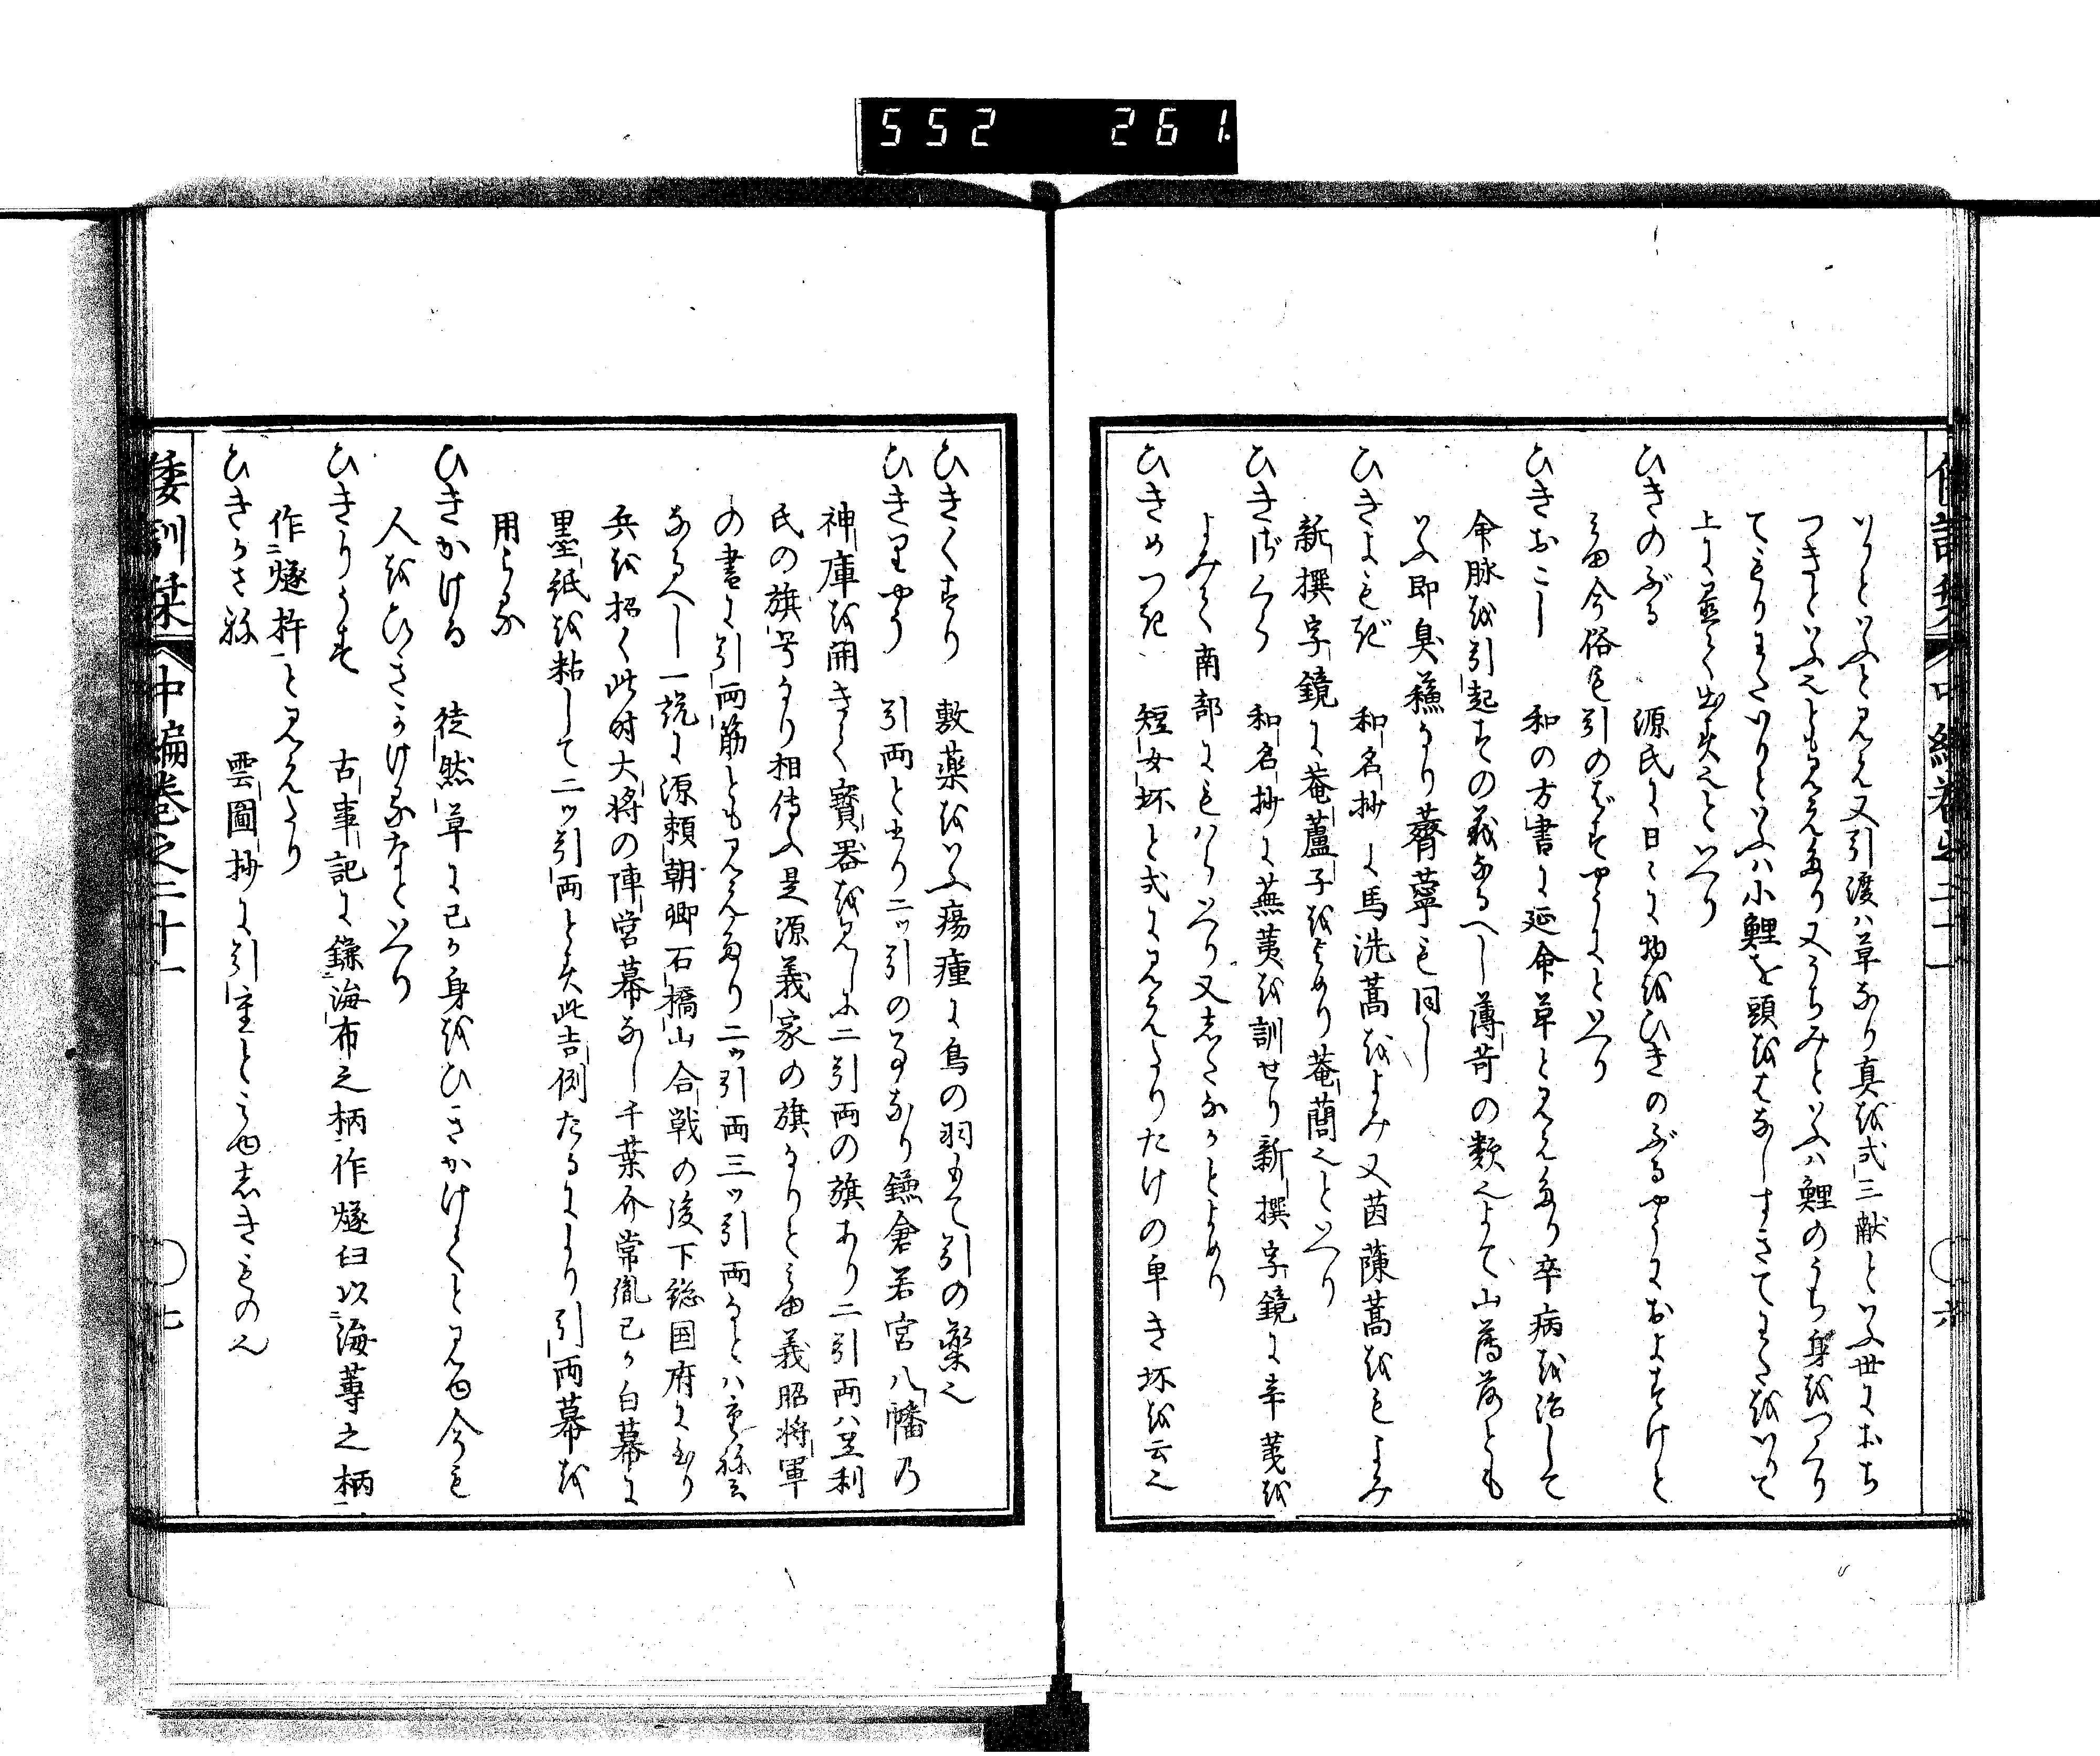 552 261
いりといふと見え又引渡ハ草なり真を式三献といふ世におち
つきといふ之とも見えたり又うちみといふハ鯉のうち身をつくり
てもりまたいりといふハ小鯉を頭をはなしすきてまたをいりて
上に並て出す之といへり
ひきのぶる　源氏に日ゝに物をひきのぶるやうにおよすけと
みゆ今俗も引のばすやうにといへり
ひきおこし　和の方書に延命草と見えたり卒病を治して
命脉を引起すの義なるへし薄苛の類之よて山薄荷とも
いふ即臭蘓なり薺薴も同し
ひきよもぎ　和名抄に馬洗蒿をよみ又茵蔯蒿をもよみ
新撰字鏡に菴蘆子をよめり菴蕳之といへり
ひきざくら　和名抄に蕪荑を訓せり新撰字鏡に辛荑を
よみて南部にもいへり又志たなかとよめり
ひきめつき　短女坏と式に見えたりたけの卑き坏を云之
ひきくすり　敷薬をいふ瘍瘇に鳥の羽もて引の薬之
ひきりやう　引両と書り二ッ引の事なり鎌倉若宮八幡乃
神庫を開きて寳器を見しに二引両の旗あり二引両ハ足利
氏の旗号なり相傳ふ是源義家の旗なりとみゆ義昭将軍
の書に引両筋とも見えたり二ッ引両三ッ引両なとハ重ね云
なるへし一説に源頼朝卿石橋山合戦の後下総国府に至り
兵を招く此時大将の陣営幕なし千葉介常胤己か白幕に
墨紙を粘して二ッ引両とす此吉例たるにより引両幕を
用らる
ひきかける　徒然草に己か身をひきかけてと見ゆ今も
人をひきかけるなといへり
ひきりうす　古事記に鎌海布之柄作燧臼以海蓴之柄
作燧杵と見えたり
ひきかさね　雲圖抄に引重とみゆ志きもの之
倭訓栞　中編巻之二十一　〇七